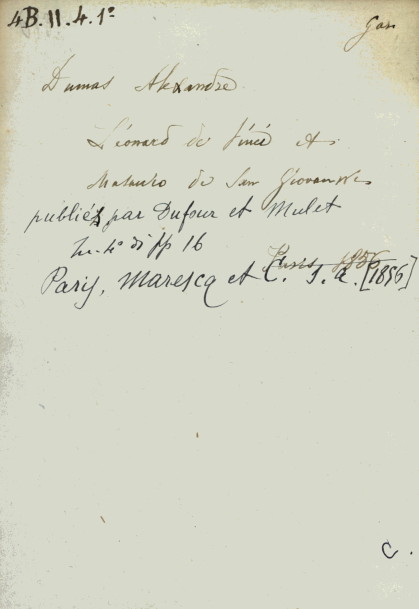 4B.II.4.1º
Gar
Dumas Alexandre
Léonard de Vinci et
Masaccio de San Giovanni
publiés par Dufour et Mulet
in-4º di pp 16
Paris 1856
Paris, Marescq et C. S. a. [1856]
C.